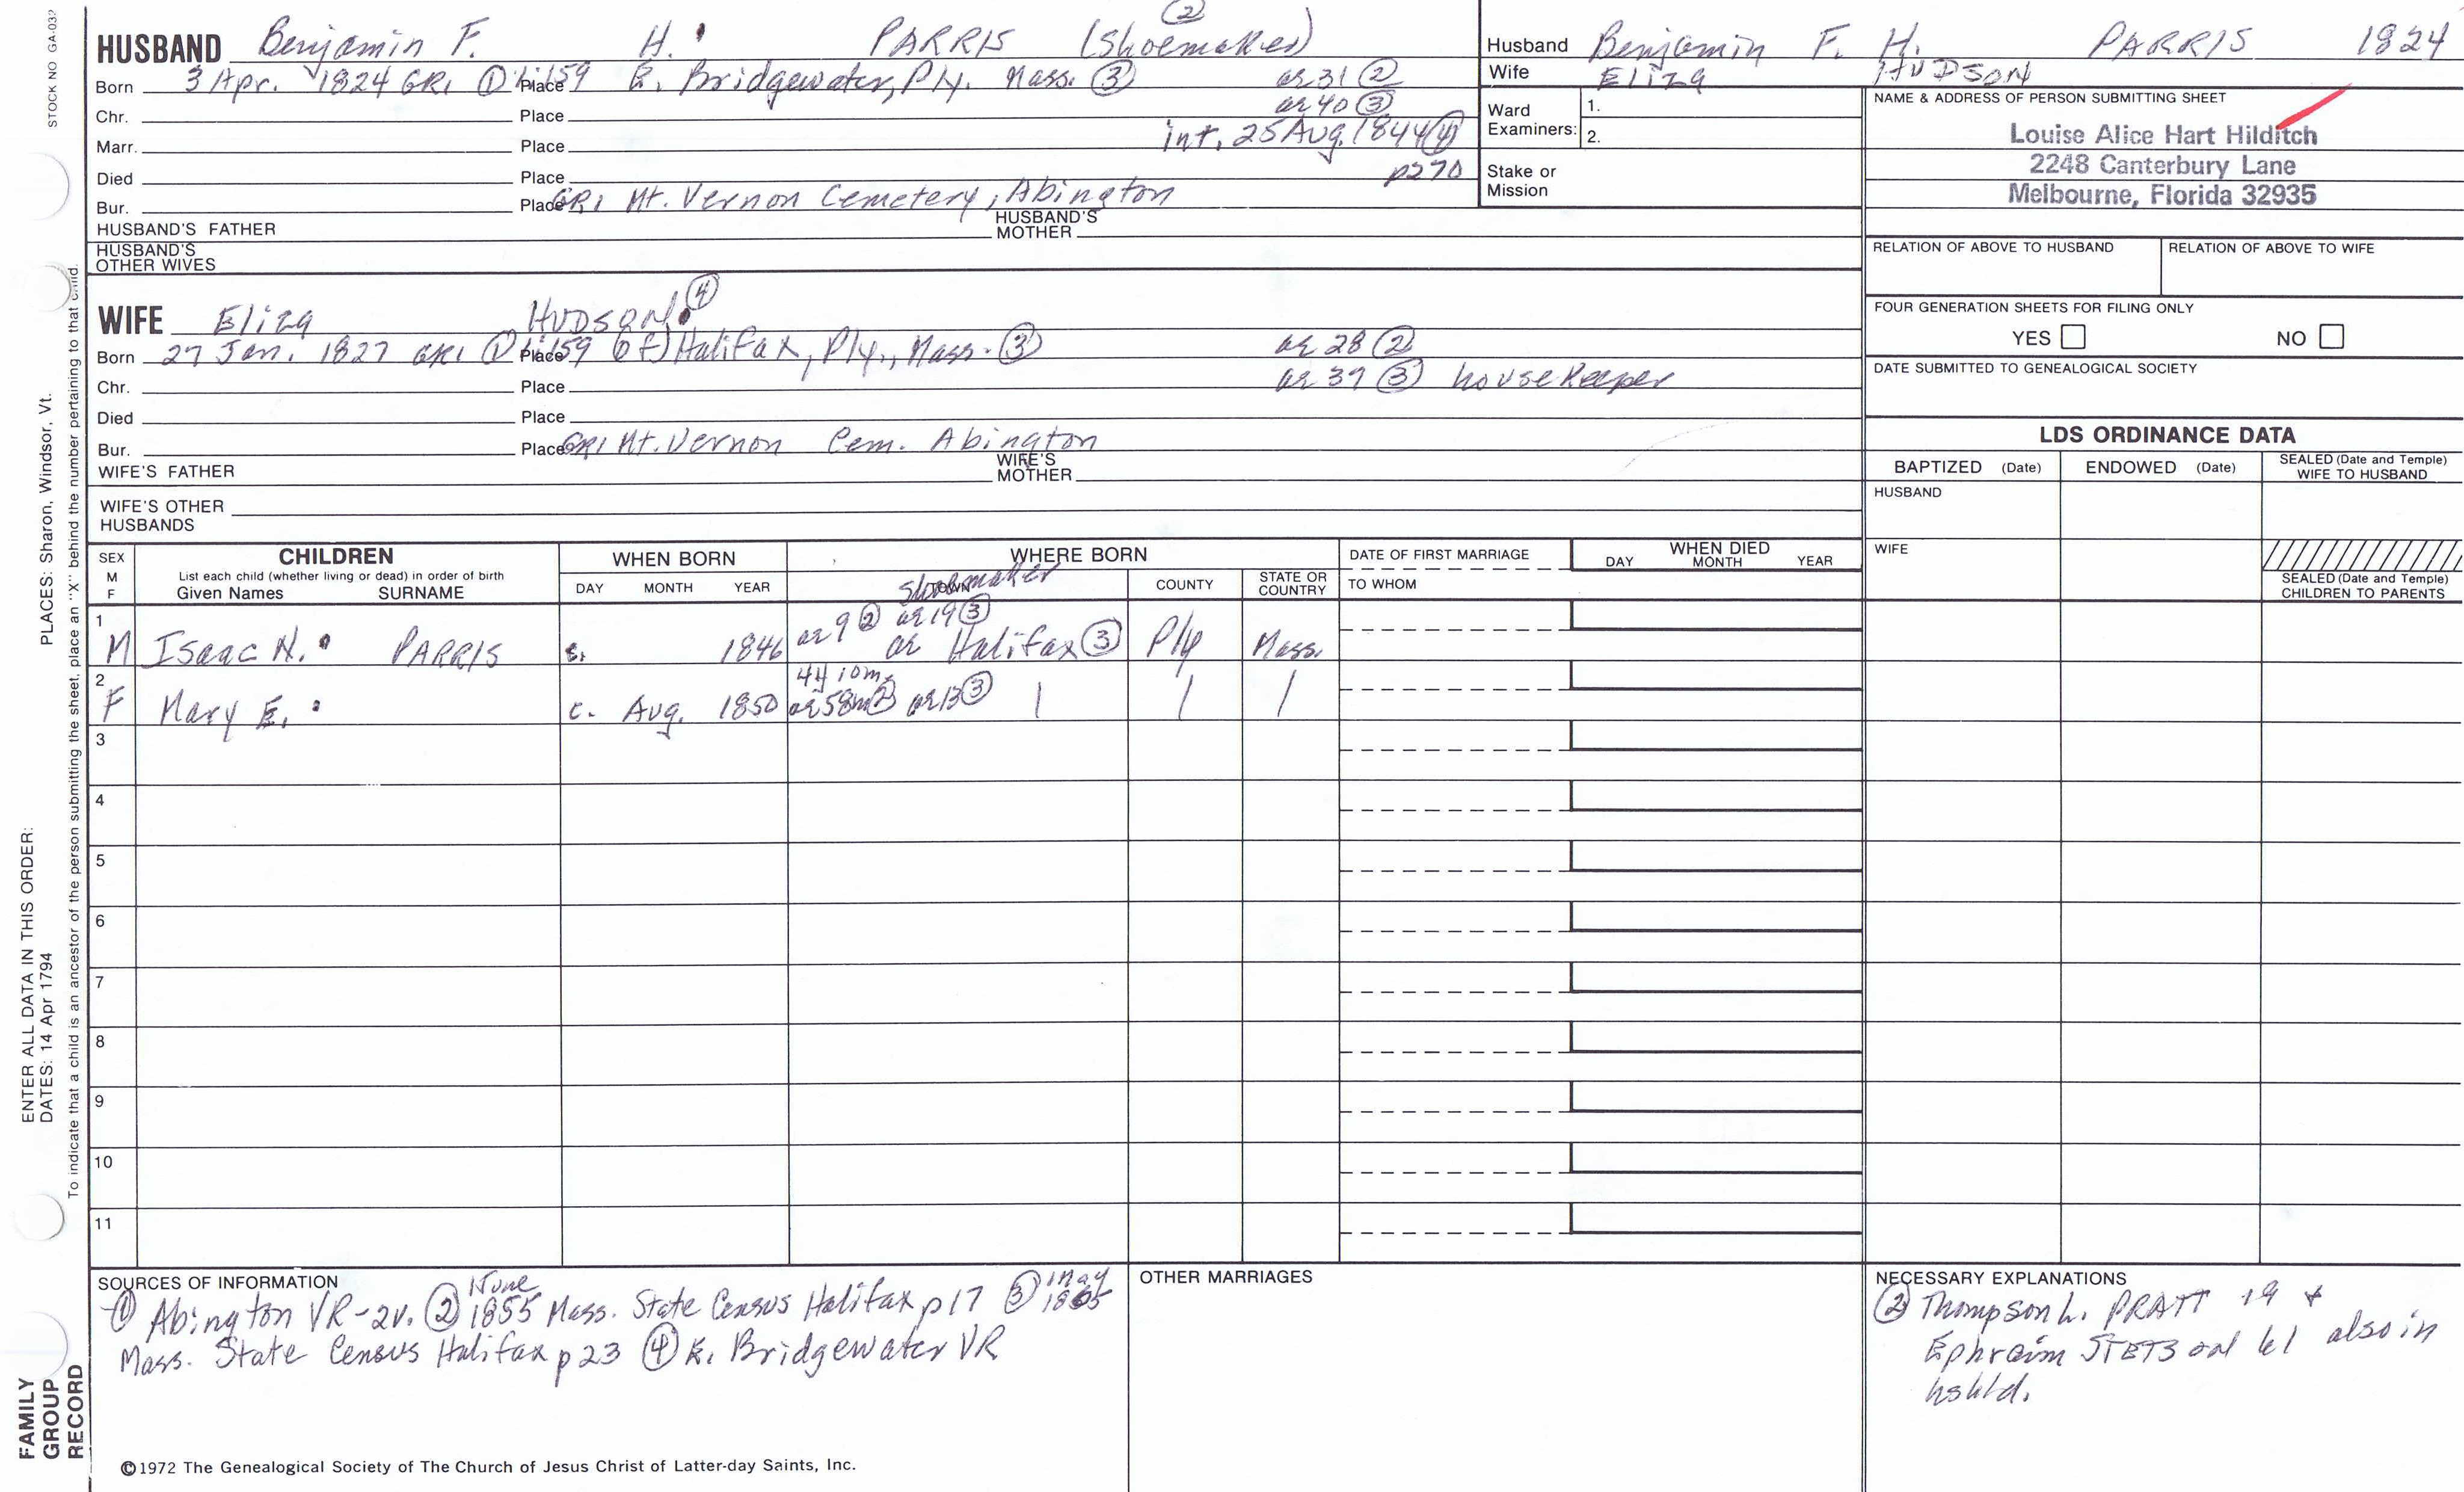 STOCK NO GA-032
HUSBAND Benjamin F. H. PARRIS (Shoemaker) ②
Born 3 Apr. 1824 GR1 ① Place E. Bridgewater, Ply. Mass. ③ ae 31 ②
ae 40 ③
Chr. Place
int. 25 Aug. 1844 ④
Marr. Place
p270
Died Place
Bur. Place GR1 Mt. Vernon Cemetery, Abington
HUSBAND'S FATHER HUSBAND'S MOTHER
HUSBAND'S OTHER WIVES
WIFE Eliza HUDSON ④
Born 27 Jan. 1827 GR1 ① Place (of) Halifax, Ply., Mass. ③ ae 28 ②
Chr. Place ae 37 ③ housekeeper
Died Place
Bur. Place GR1 Mt. Vernon Cem. Abington
WIFE'S FATHER WIFE'S MOTHER
WIFE'S OTHER HUSBANDS
Husband Benjamin F. H. PARRIS 1824
Wife Eliza HUDSON
Ward Examiners: 1.
2.
Stake or Mission
NAME & ADDRESS OF PERSON SUBMITTING SHEET
Louise Alice Hart Hilditch
2248 Canterbury Lane
Melbourne, Florida 32935
RELATION OF ABOVE TO HUSBAND RELATION OF ABOVE TO WIFE
FOUR GENERATION SHEETS FOR FILING ONLY
YES NO
DATE SUBMITTED TO GENEALOGICAL SOCIETY
LDS ORDINANCE DATA
BAPTIZED (Date) ENDOWED (Date) SEALED (Date and Temple) WIFE TO HUSBAND
HUSBAND
WIFE
SEALED (Date and Temple) CHILDREN TO PARENTS
SEX M F
CHILDREN
List each child (whether living or dead) in order of birth
Given Names SURNAME
WHEN BORN
DAY MONTH YEAR
WHERE BORN
Shoemaker
TOWN COUNTY STATE OR COUNTRY
DATE OF FIRST MARRIAGE
TO WHOM
WHEN DIED
DAY MONTH YEAR
ae 9 ② ae 19 ③
1 M Isaac N. PARRIS c. 1846 Halifax ③ Ply Mass.
4y 10m
2 F Mary E. c. Aug. 1850 ae 58m ② ae 13 ③
3
4
5
6
7
8
9
10
11
SOURCES OF INFORMATION
① Abington VR-2v. ② June 1855 Mass. State Census Halifax p17 ③ May 1865
Mass. State Census Halifax p23 ④ E. Bridgewater VR
OTHER MARRIAGES
NECESSARY EXPLANATIONS
② Thompson L. PRATT 19 +
Ephraim STETSON 61 also in
hshld.
©1972 The Genealogical Society of The Church of Jesus Christ of Latter-day Saints, Inc.
PLACES: Sharon, Windsor, Vt.
ENTER ALL DATA IN THIS ORDER:
DATES: 14 Apr 1794
To indicate that a child is an ancestor of the person submitting the sheet, place an "X" behind the number pertaining to that child.
FAMILY GROUP RECORD